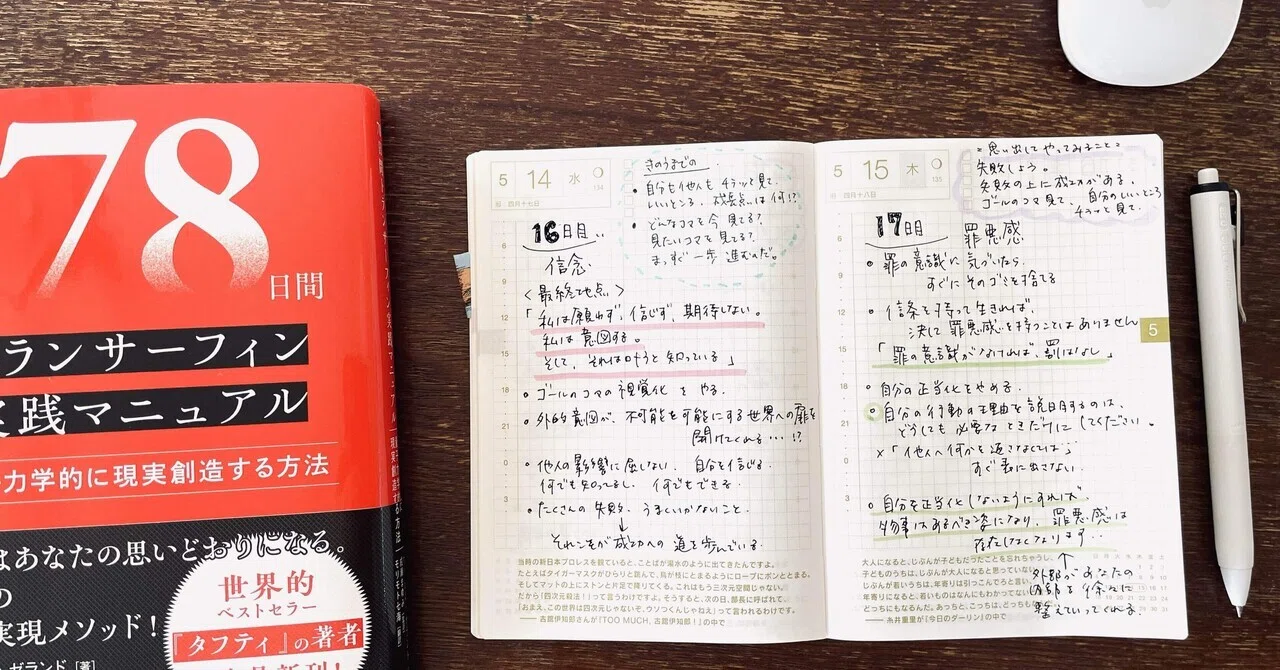 78
日間
ランサーフィン
実践マニュアル
力学的に現実創造する方法
はあなたの思いどおりになる。
の
実現メソッド！
世界的
ベストセラー
『タフティ』の著者
ゼランド [著]
5 14 水
134
四月十七日
きのうまでの
・自分も他人も
いいところ、成長点は何!?
・どんなコマを今見てる?
見たいコマを見てる?
まっすぐ一歩 進むのだ。
16日目
信念
〈最終地点〉
「私は願わず、信じず、期待しない。
私は意図する。
そして、それは叶うと知っている」
・ゴールのコマの視覚化をやる。
・外的意図が、不可能を可能にする世界への扉を
開けてくれる…!?
・他人の影響に屈しない、自分を信じる。
何でも知ってるし、何でもできる。
・たくさんの失敗、うまくいかないこと。
↓
それこそが成功への道を歩んでいる。
当時の新日本プロレスを観ていると、ことばが湯水のように出てきたんですよ。
たとえばタイガーマスクがひらりと跳んで、鳥が枝にとまるようにロープにポンととまる。
そしてマットの上にストンと片足で降りてくる。これはもう三次元空間じゃない。
だから「四次元殺法！」って言うわけですよ。そうすると、次の日、部長に呼ばれて、
「おまえ、この世界は四次元じゃないぞ、ウソつくんじゃねえ」って言われるわけです。
——古舘伊知郎さんが『TOO MUCH, 古舘伊知郎！』の中で
5 15 木
135
四月十八日
<思い出してやってみること>
失敗しよう。
失敗の上に成功がある。
ゴールのコマ見て、自分のいいところ
見て。
17日目 罪悪感
・罪の意識に気づいたら、
すぐにそのゴミを捨てる
・信条を持って生きれば、
決して罪悪感を持つことはありません
「罪の意識がなければ、罰はなし」
・自分の正当化をやめる。
・自分の行動の理由を説明するのは、
どうしても必要なときだけにしてください。
×「他人へ何かを返さなくては」
すぐ表に出さない。
・自分を正当化しないようにすれば
物事はあるべき姿になり、罪悪感は
存在しなくなります…
↑
外部があなたの
内部を徐々に
整えていってくれる。
大人になると、じぶんが子どもだったことを忘れちゃうし、
子どものうちは、じぶんが大人になると思っていない
じぶんが若いうちは、年寄りは引っこんでろと言い
年寄りになると、若いものはなんにもわかってない
どっちにもなるんだ。あっちと、こっちは、どっちも
——糸井重里が『今日のダーリン』の中で
5